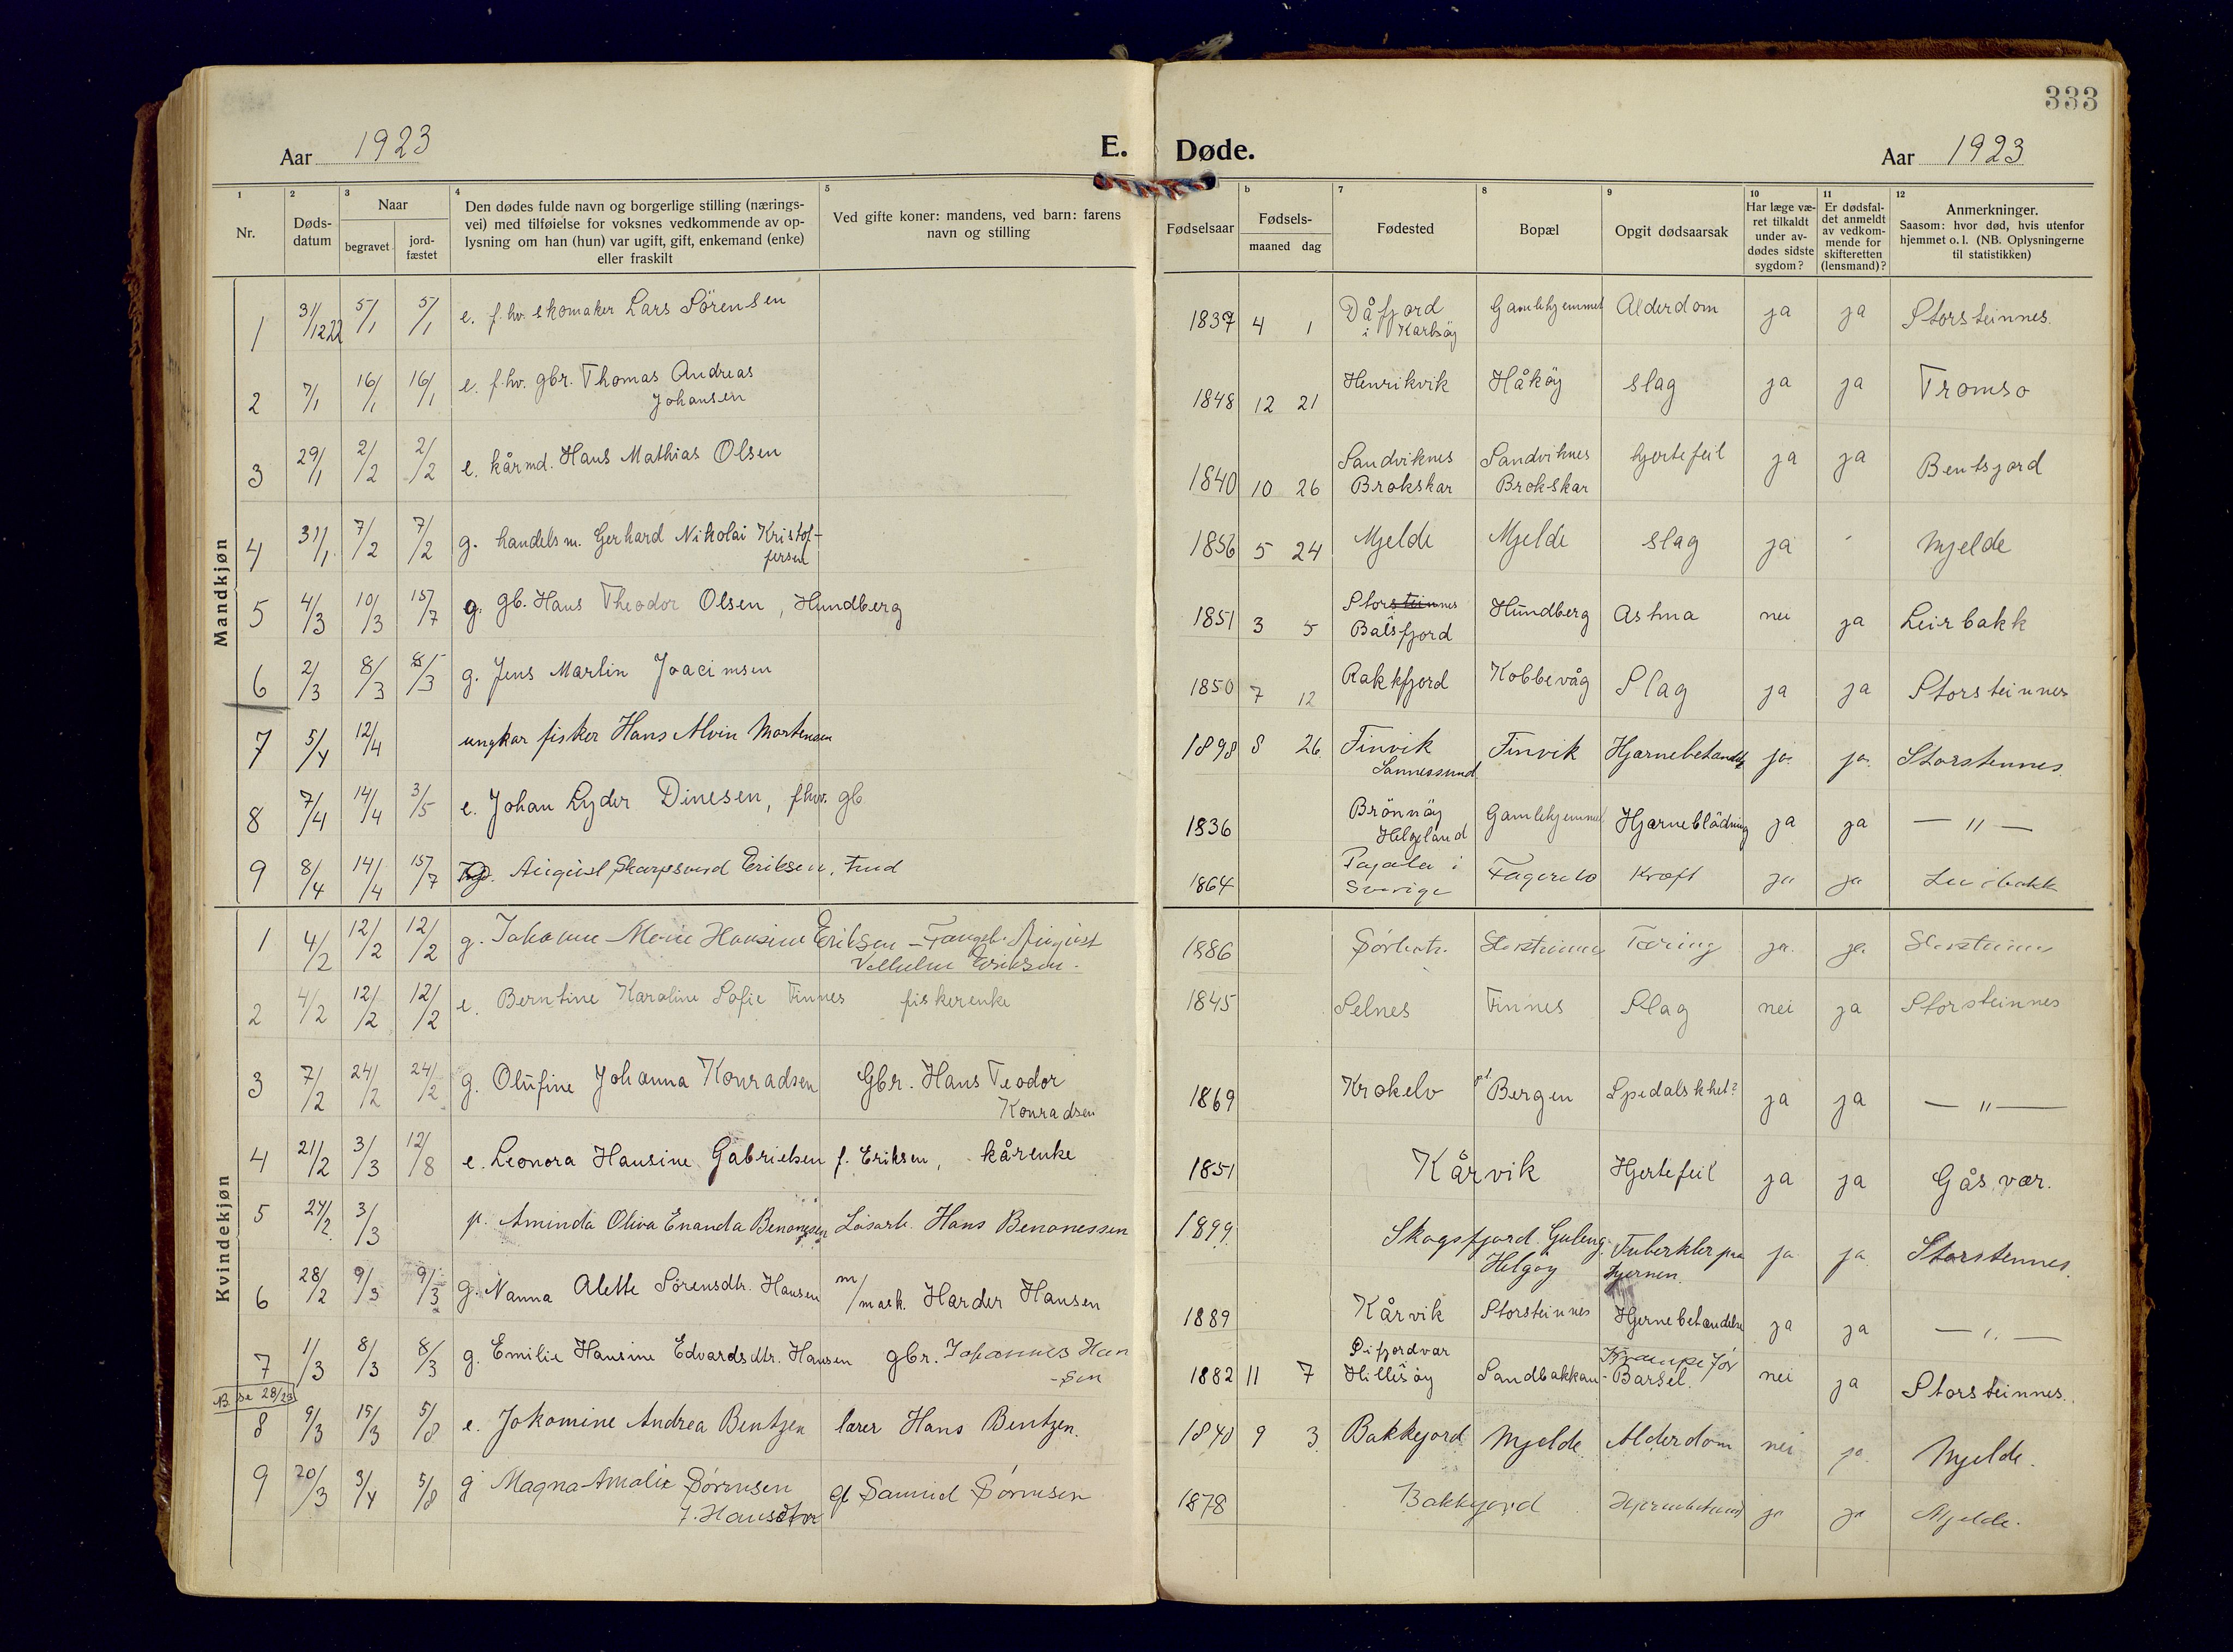 333
Aar 1923 E. Døde. Aar 1923
1 2 3 4 5 b 7 8 9 10 11 12
Nr.
Døds-
datum
Naar
begravet
jord-
fæstet
Den dødes fulde navn og borgerlige stilling (nærings-
vei) med tilføielse for voksnes vedkommende av op-
lysning om han (hun) var ugift, gift, enkemand (enke)
eller fraskilt
Ved gifte koner: mandens, ved barn: farens
navn og stilling
Fødselsaar
Fødsels-
maaned dag
Fødested
Bopæl
Opgit dødsaarsak
Har læge væ-
ret tilkaldt
under av-
dødes sidste
sygdom?
Er dødsfal-
det anmeldt
av vedkom-
mende for
skifteretten
(lensmand)?
Anmerkninger.
Saasom: hvor død, hvis utenfor
hjemmet o. l. (NB. Oplysningerne
til statistikken)
Mandkjøn
1 31/12 22 5/1 5/1 e. f. hv. skomaker Lars Sörensen 1837 4 1 Dåfjord Gamlehjemmet Alderdom ja ja Storsteinnes.
i Karlsöy
2 7/1 16/1 16/1 e. f. hv. gbr. Thomas Andreas 1848 12 21 Henrikvik Håköy slag ja ja Tromsö
Johansen
3 29/1 2/2 2/2 e. kårmd. Hans Mathias Olsen 1840 10 26 Sandviknes Sandviknes hjertefeil ja ja Bentsjord
Brokskar Brokskar
4 31/1 7/2 7/2 g. handelsm. Gerhard Nikolai Kristof- 1856 5 24 Mjelde Mjelde slag ja - Mjelde
fersen
5 4/3 10/3 15/7 g. gb. Hans Theodor Olsen, Hundberg 1851 3 5 Storsteinnes Hundberg Astma nei ja Leirbakk
Balsfjord
6 2/3 8/3 8/3 g. Jens Martin Joacimsen 1850 7 12 Rakkfjord Kobbevåg Slag ja ja Storsteinnes
7 5/4 12/4 ungkar fisker Hans Alvin Mortensen 1898 8 26. Finvik Finvik Hjærnebetændels ja. ja. Storstennes.
Sannessund
8 7/4 14/4 3/5 e. Johan Lyder Dinesen, fhv. gb 1836 Brönnöy Gamlehjemmet Hjærneblödning ja ja — " —
Helgeland
9 8/4 14/4 15/7 August Skarpsund Eriksen, 1864 Pajala i Kræft ja ja
Sverige
Kvindekjøn
1 4/2 12/2 12/2 g. Johanne Marie Hansine Eriksen — August 1886 Storsteinnes Tæring ja. ja. Storsteinnes
Vilhelm Eriksen.
2 4/2 12/2 12/2 e. Berntine Karoline Sofie Finnes fiskerenke 1845 Selnes Finnes Slag nei ja Storsteinnes
3 7/2 24/2 24/2 g. Olufine Johanna Konradsen Gbr. Hans Teodor 1869 Krokelv pt. Bergen Spedalskhet? ja ja — " —
Konradsen
4 21/2 3/3 12/8 e. Leonora Hansine Gabrielsen f. Eriksen, kårenke 1851 Kårvik Hjertefeil ja ja Gåsvær.
5 24/2. 3/3 p. Aminda Oliva Enanda Benonessen Lösarb. Hans Benonessen 1899. Skogsfjord. Tuberkler paa ja ja. Storstennes.
Helgøy hjernen.
6 28/2 9/3 9/3 g. Nanna Alette Sörensdtr. Hansen m/mask. Harder Hansen 1889 Kårvik Storsteinnes Hjernebetændelse ja ja — " —
7 1/3 8/3 8/3 g. Emilie Hansine Edvardsdtr. Hansen gbr. Johannes Han 1882 11 7 Sandbakkan Krampe før nei ja Storsteinnes.
-sen Hillesöy -Barsel.
N.B. se 28/23
8 9/3 15/3 5/8 e. Jokomine Andrea Bentzen lærer Hans Bentzen. 1840 9 3. Bakkejord Mjelde. Alderdom nei ja. Mjelde.
9 20/3 3/4 5/8 g Magna Amalie Sørensen gb Samuel Sørensen 1878 Bakkejord Hjernebetænd ja ja Mjelde.
f. Hansdtr